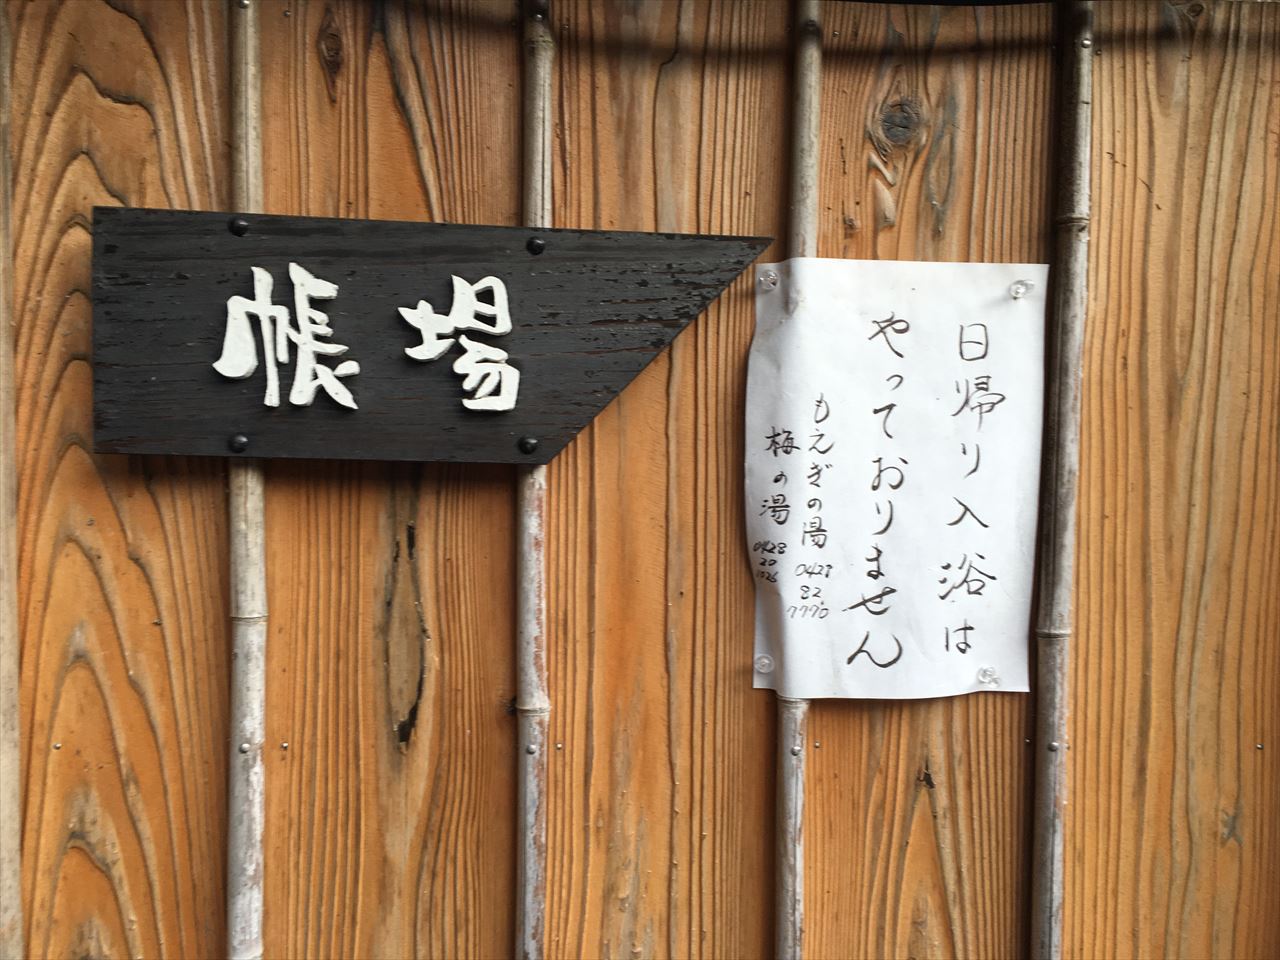 帳場
日帰り入浴は
やっておりません
もえぎの湯 0428 82 7770
梅の湯 0428 20 1026